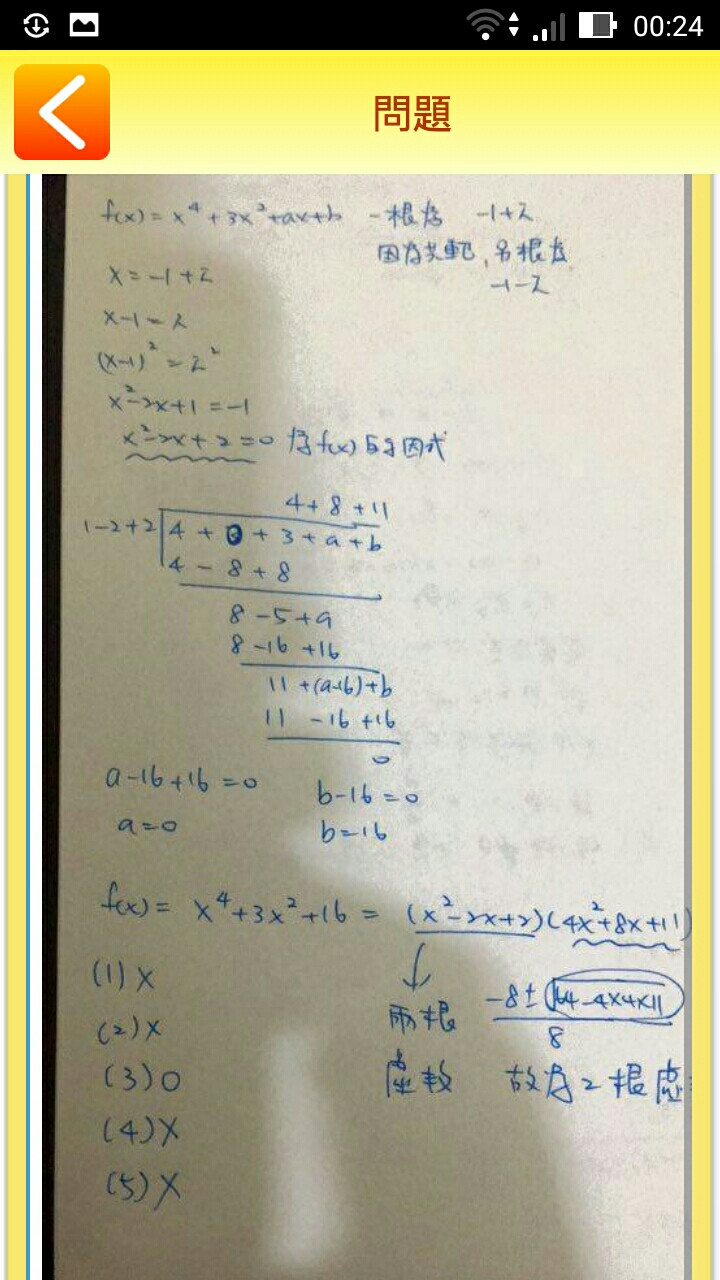 00:24
問題
f(x) = x⁴ + 3x² + ax + b 一根為 -1+i
因為共軛, 另根為
-1-i
x = -1 + i
x - 1 = i
(x-1)² = i²
x² - 2x + 1 = -1
x² - 2x + 2 = 0 為 f(x) 的因式
4 + 8 + 11
1 - 2 + 2 | 4 + 0 + 3 + a + b
4 - 8 + 8
8 - 5 + a
8 - 16 + 16
11 + (a-16) + b
11 - 16 + 16
0
a - 16 + 16 = 0 b - 16 = 0
a = 0 b = 16
f(x) = x⁴ + 3x² + 16 = (x² - 2x + 2)(4x² + 8x + 11)
(1) X
(2) X
(3) O
(4) X
(5) X
兩根
虛數
-8 ± √64 - 4×4×11
8
故為 2 根虛